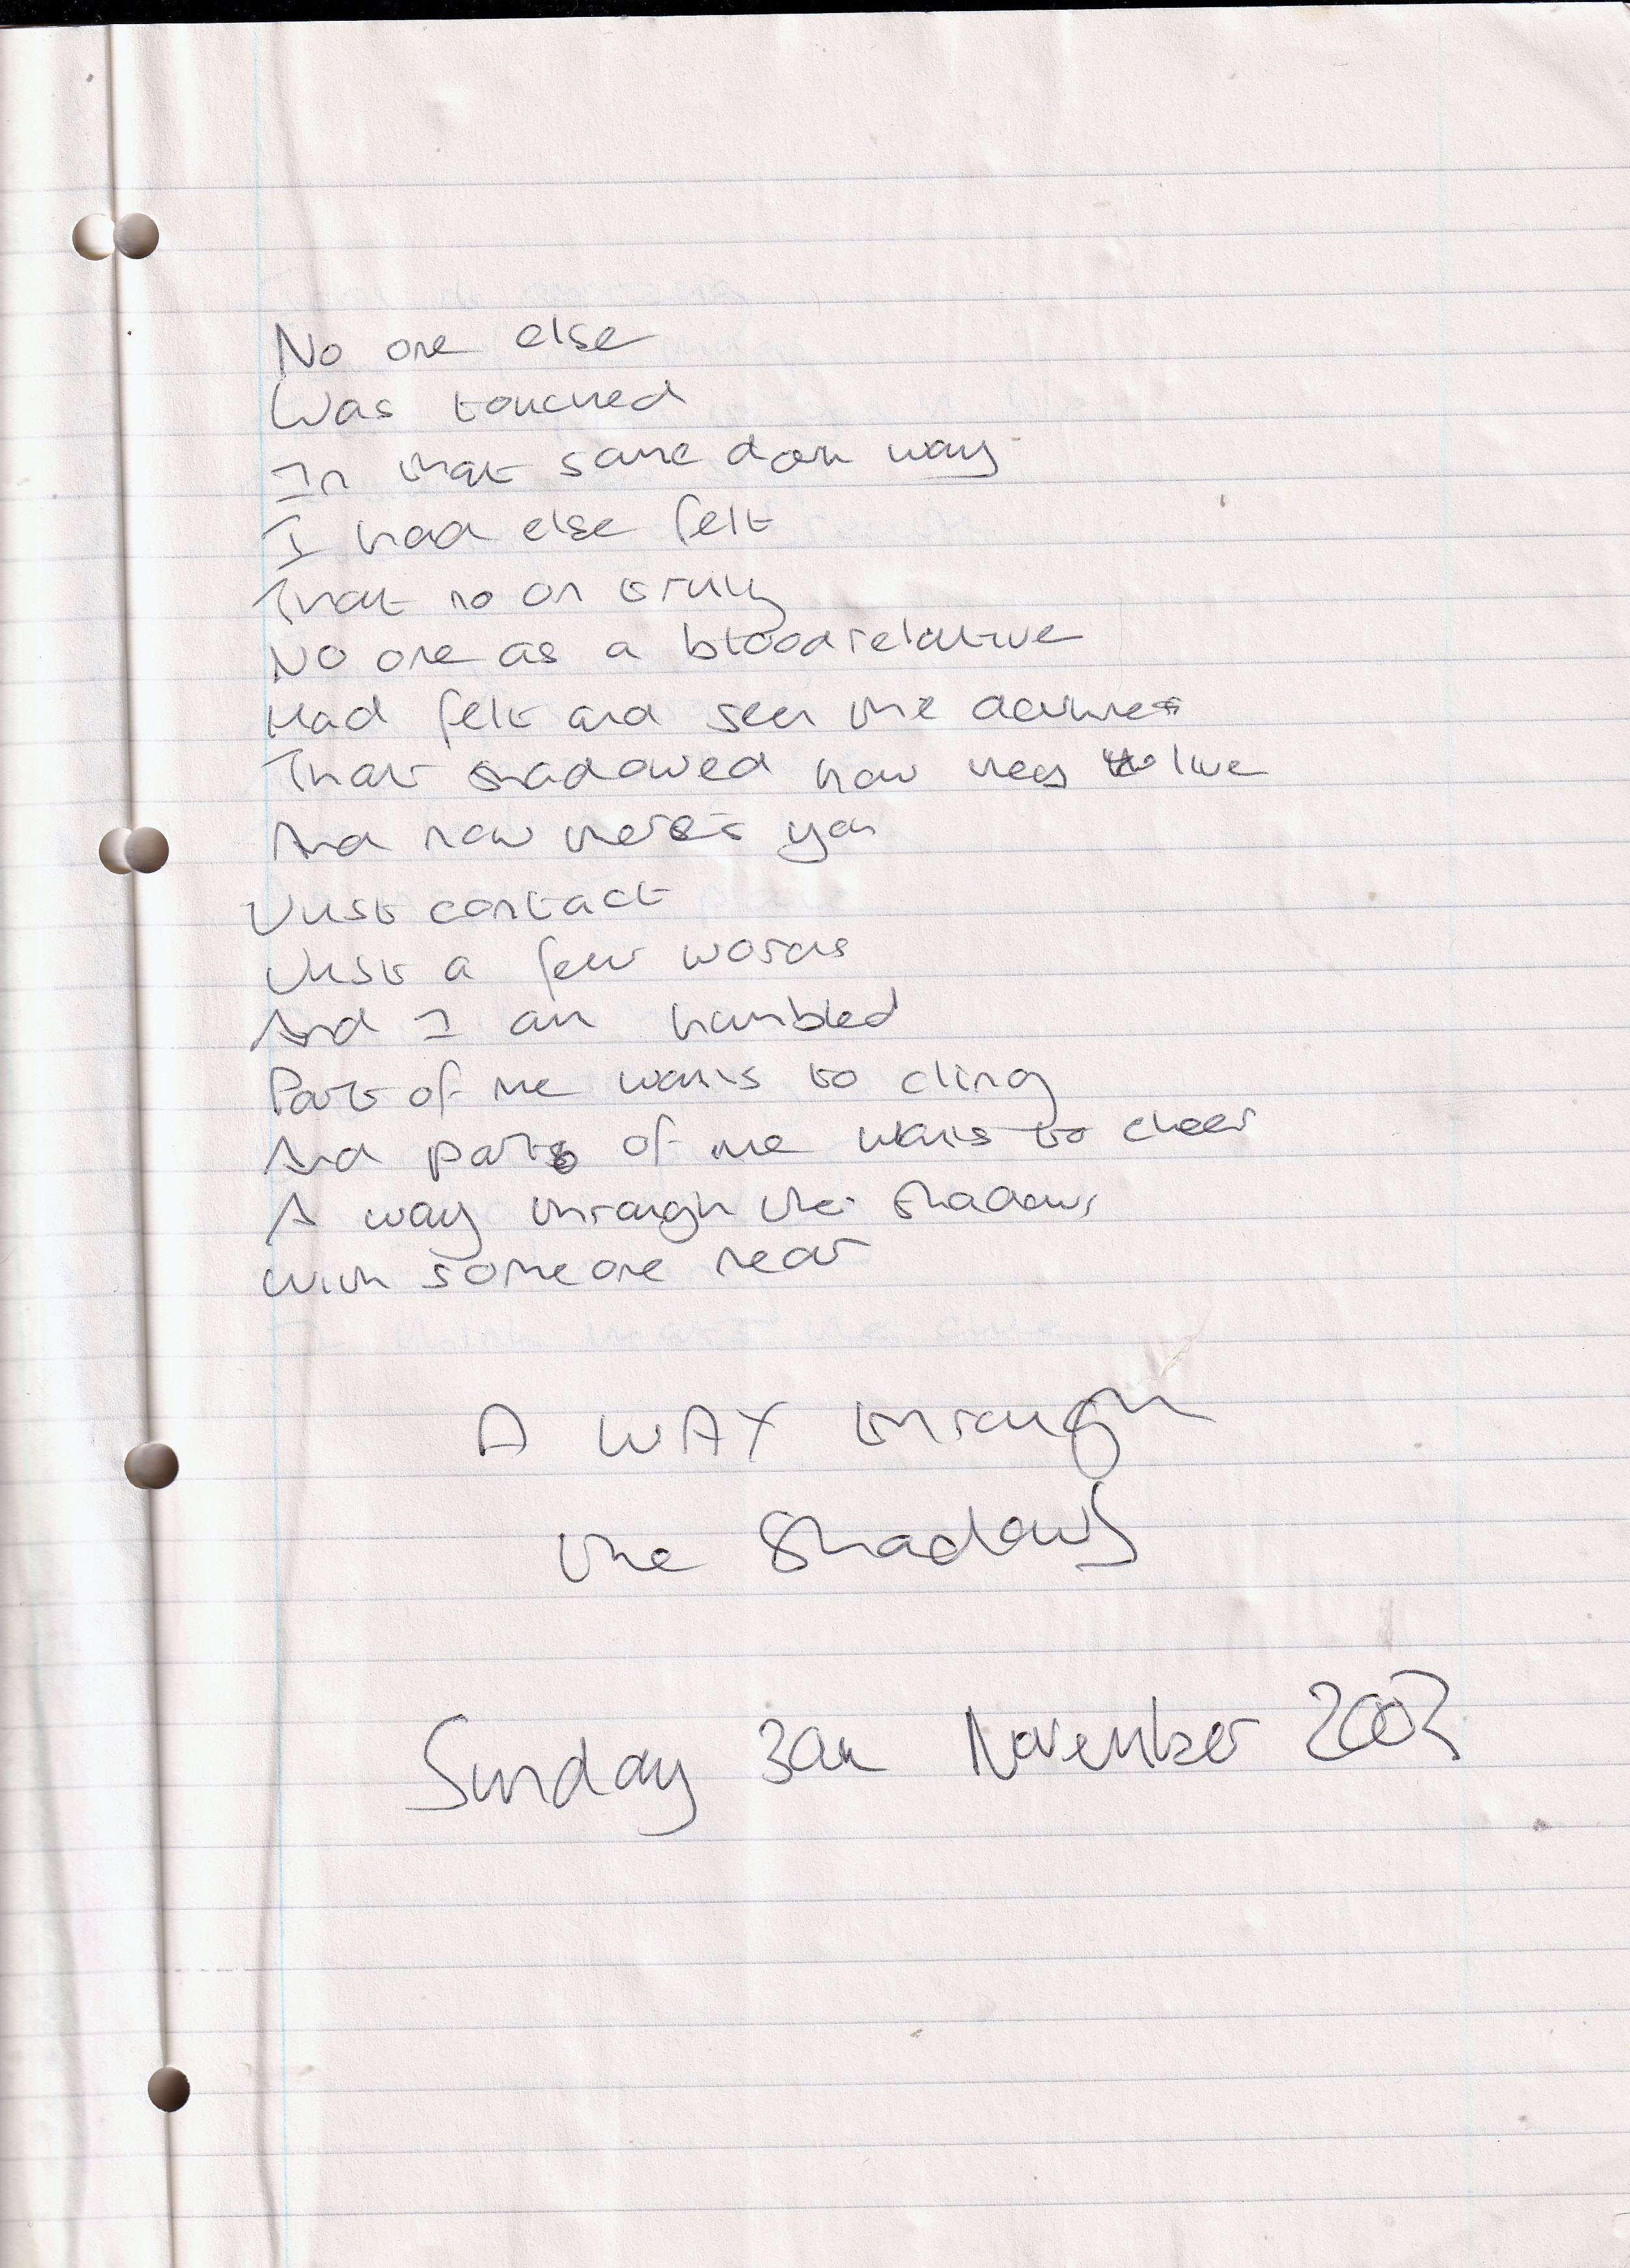 No one else
Was touched
In that same dark way
I had else felt
That no on truly
No one as a blood relative
Had felt and seen the darkness
That shadowed how they live
And now there's you
Just contact
Just a few words
And I am humbled
Part of me wants to cling
And parts of me wants to cheer
A way through the shadows
With someone near
A WAY through
the Shadows
Sunday 3rd November 2002